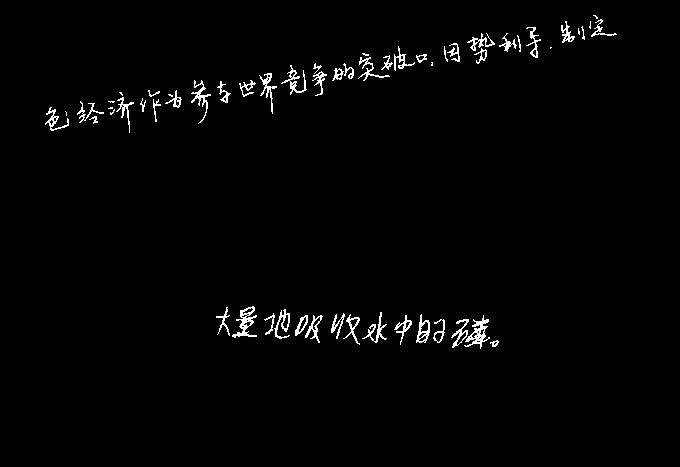 色经济作为参与世界竞争的突破口,因势利导,制定
大量地吸收水中的磷。